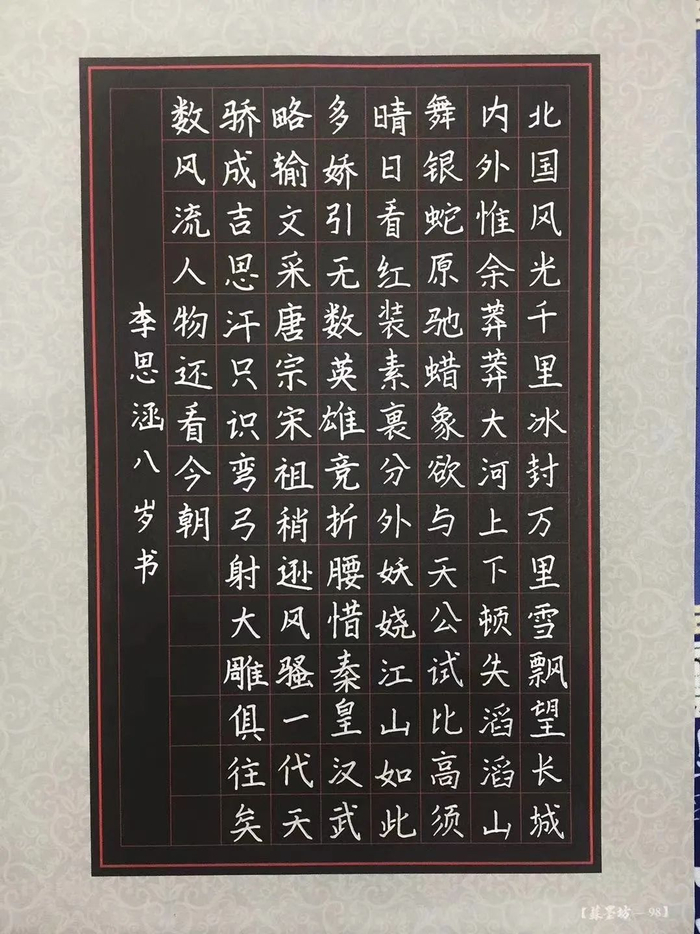 北国风光千里冰封万里雪飘望长城
内外惟余莽莽大河上下顿失滔滔山
舞银蛇原驰蜡象欲与天公试比高须
晴日看红装素裹分外妖娆江山如此
多娇引无数英雄竞折腰惜秦皇汉武
略输文采唐宗宋祖稍逊风骚一代天
骄成吉思汗只识弯弓射大雕俱往矣
数风流人物还看今朝
李思涵八岁书
【菉墨坊—98】